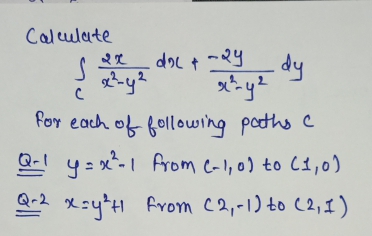 Calculate
∫ 2x/(x²-y²) dx + -2y/(x²-y²) dy
C
for each of following paths C
Q-1 y = x²-1 from (-1,0) to (1,0)
Q-2 x=y²+1 from (2,-1) to (2,1)